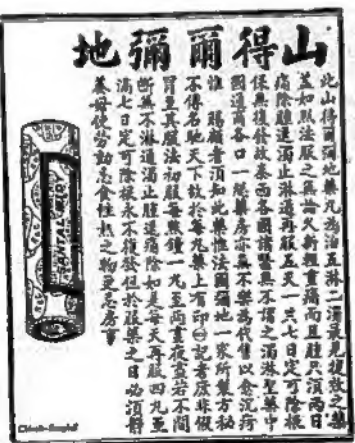 山得爾彌地
此山得爾彌地藥丸為治五淋二濁最先復效之藥
蓋如照法服之無論久新輕重痛而且腫只須兩日
痛除腫退濁止淋通再服五天一共七日定可除根
保無復發故泰西各國諸醫無不謂之濁淋聖藥中
國通商各口一應藥房亦無不樂為代售以愈沉疴
惟賜顧者須知此藥惟法國彌地一家所製方秘
不傳名馳天下故於每丸藥上有印記者庶非假
冒至其服法初服每點鐘一丸至兩晝夜盡若不間
斷無不淋通濁止腫退痛除如是每天再服四丸至
滿七日定可除根永不復發但於服藥之日必須靜
養毋使勞動忌食性熱之物更忌房事
SANTAL MIDY